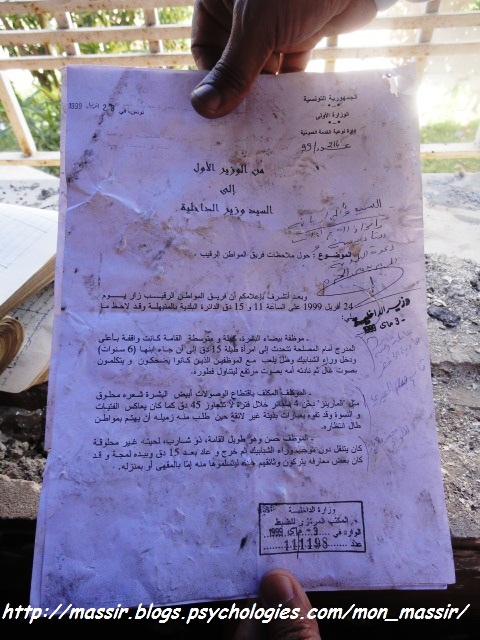 الجمهورية التونسية
الوزارة الأولى
تونس، في 28 أفريل 1999
من الوزير الأول
إلى
السيد وزير الداخلية
الموضوع : حول ملاحظات فريق المواطن الرقيب .
وبعد أتشرف بإعلامكم أن فريق المواطن الرقيب زار يوم
24 أفريل 1999 على الساعة 11 و 15 دق الدائرة البلدية بالمنيهلة وقد لاحظ ما
- موظفة بيضاء البشرة، ومتوسطة القامة كانت واقفة بأعلى
المدرج أمام المصلحة تتحدث إلى امرأة طيلة 15 دق إلى أن جاء ابنها (6 سنوات)
ودخل وراء الشبابيك وظل يلعب مع الموظفين الذين كانوا يضحكون و يتكلمون
بصوت عال ثم نادته أمه بصوت مرتفع ليتناول فطوره.
- الموظف المكلف باقتطاع الوصولات أبيض البشرة شعره محلوق
دخن 4 سجائر خلال فترة لا تتجاوز 45 دق كما كان يعاكس الفتيات
و النسوة وقد تفوه بعبارات بذيئة غير لائقة حين طلب منه زميله أن يهتم بمواطن
طال انتظاره.
- الموظف حسن وهو طويل القامة، ذو شارب، لحيته غير محلوقة
كان يتنقل دون موجب وراء الشبابيك ثم خرج و عاد بعد 15 دق وبيده لمجة و قد
كان بعض معارفه يتركون وثائقهم عنده ليتسلموها منه إما بالمقهى أو بمنزله.
وزير الداخلية
3 ماي 1999
وزارة الداخلية
المكتب المركزي للضبط
الوارد في 3 ماي 1999
عدد 111198
http://massir.blogs.psychologies.com/mon_massir/